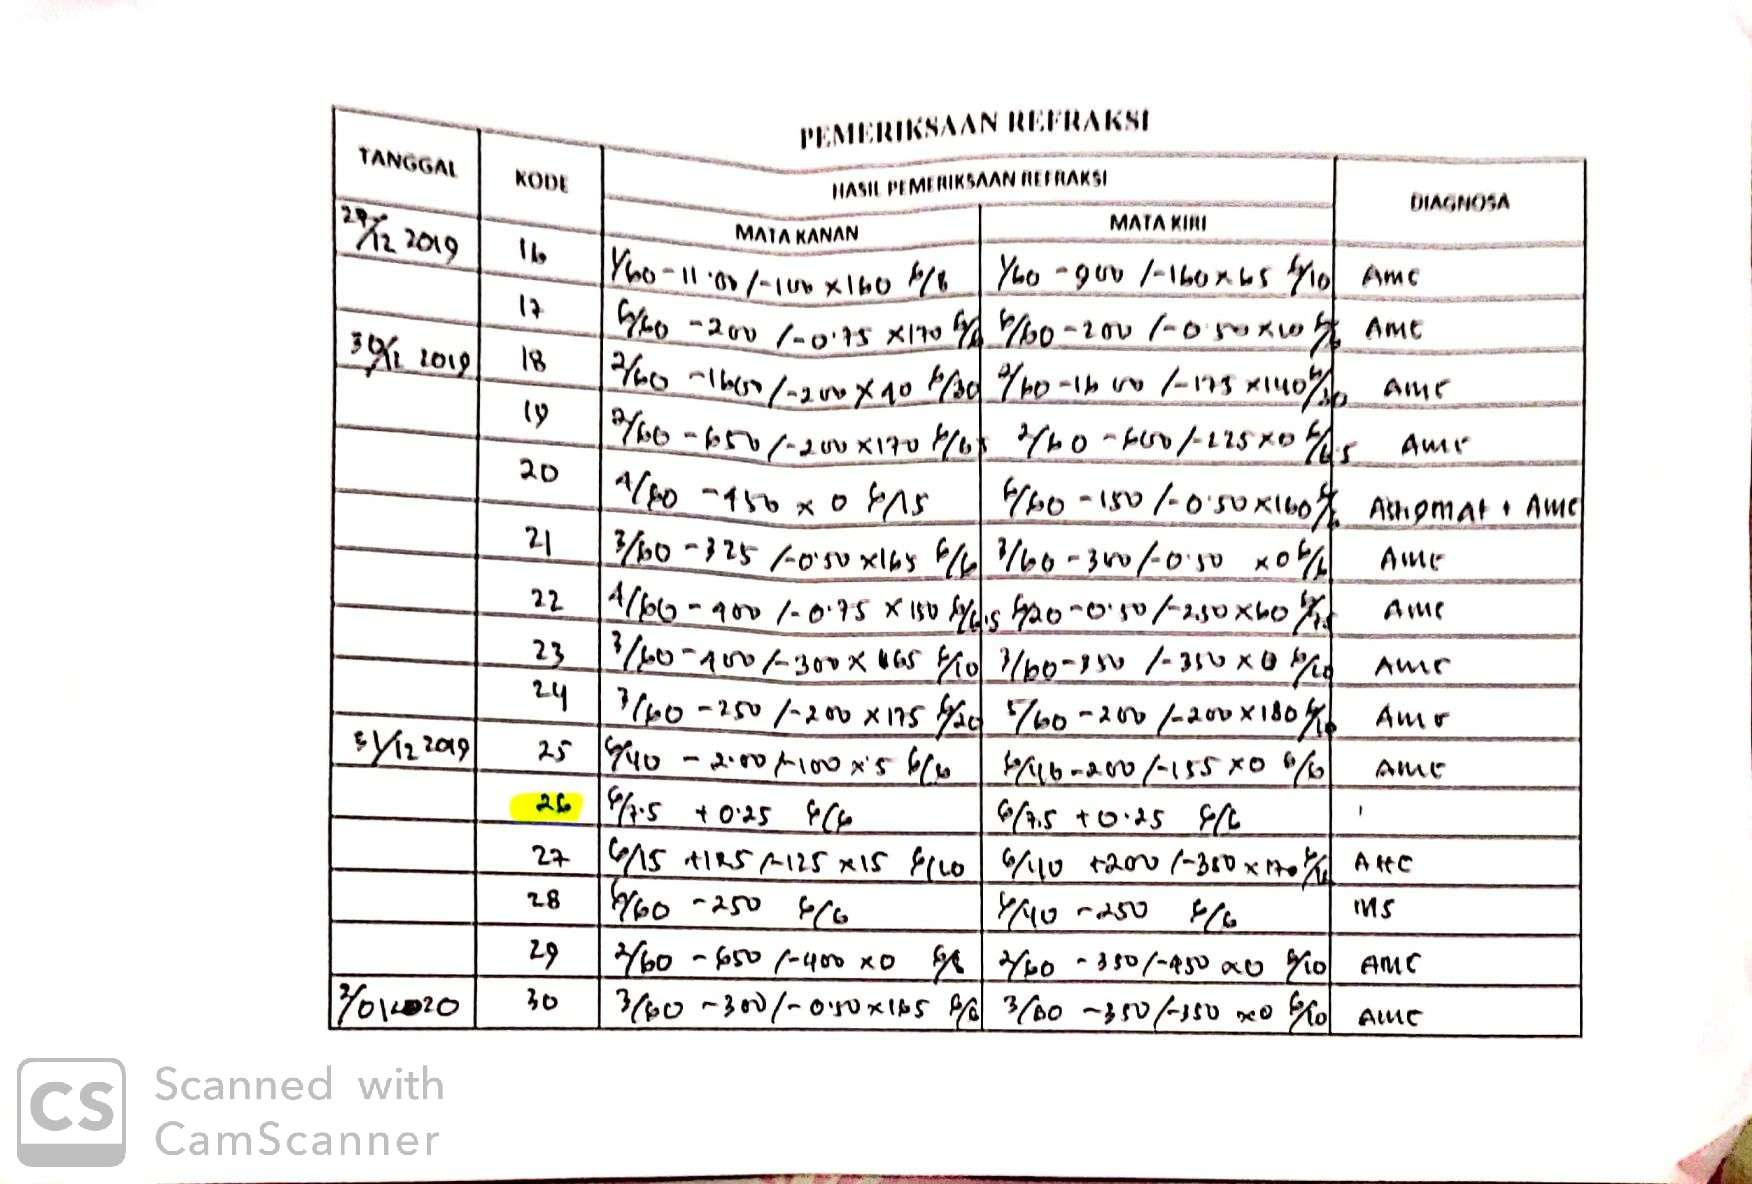 PEMERIKSAAN REFRAKSI
TANGGAL KODE HASIL PEMERIKSAAN REFRAKSI DIAGNOSA
MATA KANAN MATA KIRI
12 2019 16 1/60 -11.00 /-100 x160 6/8 1/60 -900 /-160 x65 6/10 AMC
17 6/60 -200 /-0.75 x170 6/60 -200 /-0.50 AMC
30/12 2019 18 2/60 -1600 /-200 x90 6/30 2/60 -1600 /-175 x140 AMC
19 2/60 -650 /-200 x170 2/60 -600 /-225 x0 AMC
20 4/60 -450 x 0 6/15 6/60 -150 /-0.50 x160 Astigmat + AMC
21 3/60 -325 /-0.50 x165 6/6 3/60 -300 /-0.50 x0 6/6 AMC
22 4/60 -400 /-0.75 x 150 6/20 -0.50 /-250 x60 AMC
23 3/60 -400 /-300 x 165 6/10 3/60 -350 /-350 x 0 AMC
24 3/60 -250 /-200 x175 6/20 5/60 -200 /-200 x180 AMC
31/12 2019 25 6/40 -2.00 /-100 x 5 6/6 -200 /-155 x0 AMC
26 6/7.5 +0.25 6/6 6/7.5 +0.25 6/6
27 6/15 /-125 x15 +200 /-350 x170 AHC
28 6/60 -250 6/6 -250 6/6 MS
29 2/60 -650 /-400 x0 2/60 -350 /-450 x0 6/10 AMC
30 3/60 -300 /-0.50 x165 3/60 -350 /-350 x0 6/10 AMC
CS Scanned with
CamScanner